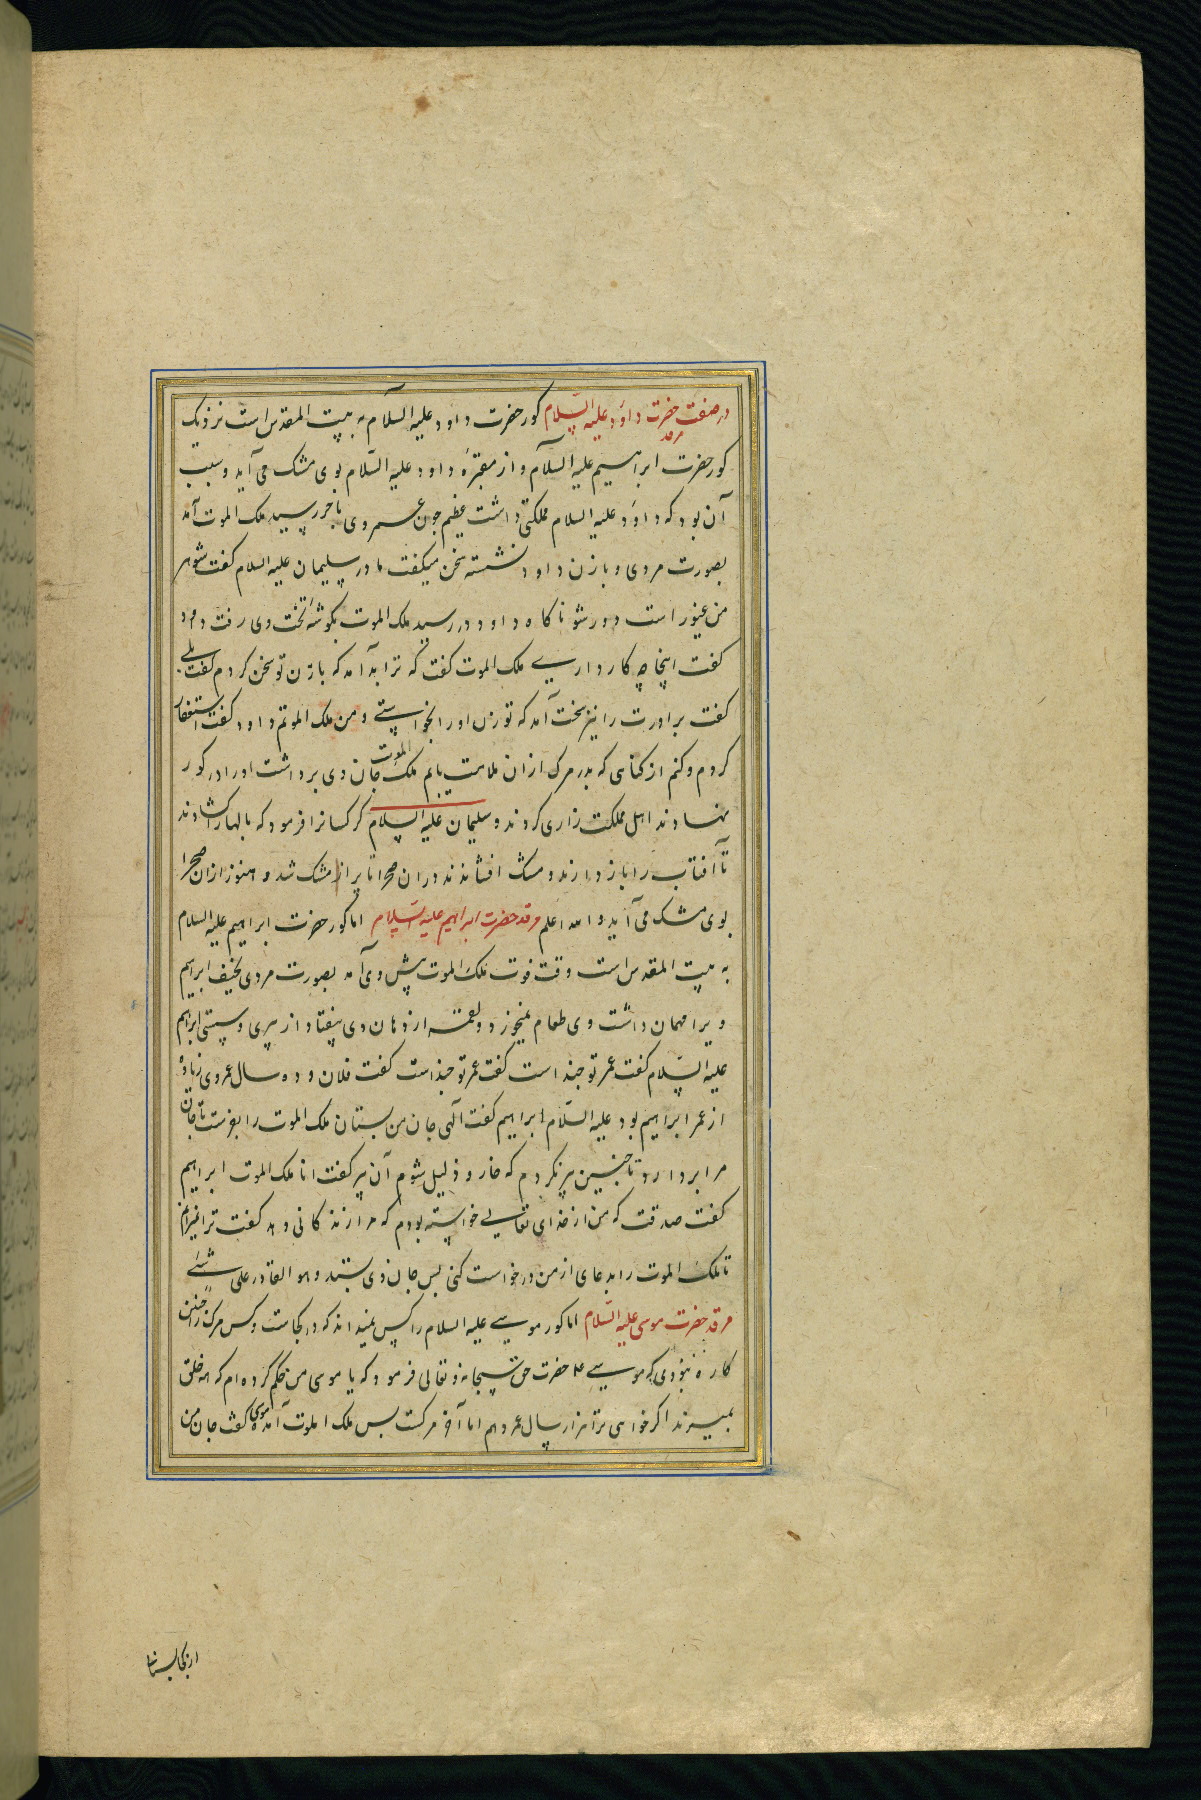 در صفت مرقد حضرت داود علیه السلام کور حضرت داود علیه السلام به بیت المقدس است نزدیک
کور حضرت ابراهیم علیه السلام و از مقبرهٔ داود علیه السلام بوی مشک می آید و سبب
آن بود که داود علیه السلام مملکتی داشت عظیم چون عمر وی باخر رسید ملک الموت آمد
بصورت مردی و با زن داود نشسته سخن میکفت مادر سلیمان علیه السلام کفت شوهر
من غیور است دور شو ناکاه داود در رسید ملک الموت بکوشهٔ تخت وی رفت داود
کفت اینجا چه کار داری ملک الموت کفت که ترا بد آمد که با زن تو سخن کردم کفت بلی
کفت برادرت را نیز سخت آمد که تو زن او را بخواستی و من ملک الموتم داود کفت استغفار
کردم و کنم از کناهی که بدر مرک ازان ملامت یابم ملک الموت جان وی برداشت او را در کور
نهادند اهل مملکت زاری کردند و سلیمان علیه السلام کرکسانرا فرمود که بالها را کشادند
تا آفتاب را باز دارند و مشک افشاندند دران صحرا تا پر از مشک شد و هنوز ازان صحرا
بوی مشک می آید و الله اعلم مرقد حضرت ابراهیم علیه السلام اما کور حضرت ابراهیم علیه السلام
به بیت المقدس است وقت فوت ملک الموت پیش وی آمد بصورت مردی نحیف ابراهیم
ویرا مهمان داشت وی طعام میخورد و لقمه از دهان وی بیفتاد از پیری و سستی ابراهیم
علیه السلام کفت عمر تو چند است کفت عمر تو چند است کفت فلان و ده سال عمر وی زیاده
از عمر ابراهیم بود علیه السلام ابراهیم کفت الهی جان من بستان ملک الموت را بفرست تا جان
مرا بردارد تا چنین پیر نکردم که خار و ذلیل شوم آن پیر کفت انا ملک الموت ابراهیم
کفت صدقت که من از خدای تعالی خواسته بودم که مرا زندکانی دهد کفت ترا نمیرانم
تا ملک الموت را بدعای از من درخواست کنی پس جان وی بستد و هو القادر علی شیء
مرقد حضرت موسی علیه السلام اما کور موسی علیه السلام را کس نمیداند که در کجاست و کس مرک را چنین
کاره نبودی که موسی ع حضرت حق سبحانه و تعالی فرمود که یا موسی من حکم کرده ام که همه خلق
بمیرند اکر خواهی ترا هزار سال عمر دهم اما آخر مرکست پس ملک الموت آمد موسی کفت جان من
از کجا بستانی